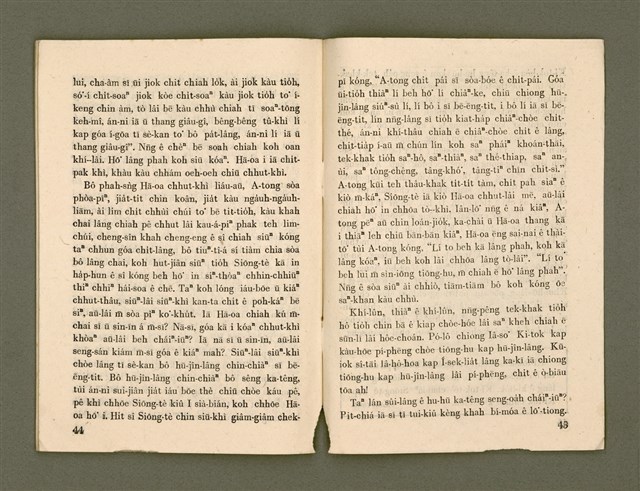 lui, cha-àm sī ūi jiok chit chiah lo̍k, ài jiok kàu tio̍h,
só͘-í chit-soaⁿ jiok kòe chit-soaⁿ kàu jiok tio̍h to͘ í-
keng chin àm, tò lâi bē kàu chhù chiah tī soaⁿ-tōng
keh-mî, án-ni iā ū thang giâu-gî, bêng-bêng tû-khì lí
kap góa í-gōa tī sè-kan to͘ bô pa̍t-lâng, án-ni lí iā ū
thang giâu-gî". Nn̄g ê chèⁿ bē soah chiah koh oan
khí-lâi. Hō͘ lâng phah koh siū kóaⁿ. Hā-oa i iā chit-
pak khì, khàu kàu chhám oeh-oeh chiū chhut-khì.
Bô phah-sǹg Hā-oa chhut-khì liáu-āu, A-tong sòa
phòa-pīⁿ, jia̍t-tit chin koân, jia̍t kàu nga̍uh-nga̍uh-
liām, ài lim chit chhùi chúi to͘ bē tit-tio̍h, kàu khah
chai lâng chiah pê chhut lâi kau-á-piⁿ phak teh lim-
chúi, cheng-sîn khah cheng-eng ê sî chiah siūⁿ kóng
taⁿ chhun góa chit-lâng, bô tiuⁿ-tî-á sí tiàm chia sòa
bô lâng chai, koh hut-jiân siūⁿ tio̍h Siōng-tè kā in
ha̍p-hun ê sî kóng beh hō͘ in siⁿ-thòaⁿ chhin-chhiūⁿ
thiⁿ chhiⁿ hái-soa ê chē. Taⁿ koh lóng iáu-bōe ū kiáⁿ
chhut-thâu, siūⁿ-lâi siūⁿ-khì kan-ta chit ê poh-káⁿ bē
sīⁿ, aūⁿ-lâi m̄ sòa pīⁿ ko͘-khu̍t. Iā Hā-oa chiah kú m̄-
chai sī ū sin-īn á m̄-sī? Nā-sī, góa kā i kóaⁿ chhut-khì
khòaⁿ aūⁿ-lâi beh cháiⁿ-iūⁿ? Iā nā sī ū sin-īn, aūⁿ-lâi
seng-sán kiám m̄-sī góa ê kiáⁿ mah? Siūⁿ-lâi siūⁿ-khì
chòe lâng tī sè-kan bô hū-jîn-lâng chin-chiàⁿ sī bē-
ēng-tit. Bô hū-jîn-lâng chin-chiàⁿ bô sêng ka-têng,
túi án-ni sui-jiân jia̍t iáu bōe thè chiū chòe káu pê,
pê khì chhōe Siōng-tè kiû I sià-biān, koh chhōe Hā-
oa hō͘ i. Hit sî Siōng-tè chin siū-khì giâm-giâm chek-
44
pī kóng, "A-tong chit pái sī sòa-bóe ê chit-pái. Góa
ūi-tio̍h thiàⁿ lí beh hō͘ lí chiâⁿ-ke, chiū chiong hū-
jîn-lâng siúⁿ-sù lí, lí bô i sī bē-ēng-tit, i bô lí iā sī bē-
ēng-tit, lín nn̄g-lâng sī tio̍h kiat-ha̍p chiâⁿ-chòe chit-
thé, án-ni khí-thâu chiah ē chiâⁿ-chòe chit ê lâng,
chit-tia̍p í-āu m̄ chún lín koh saⁿ pháiⁿ khoán-thāi,
tek-khak tio̍h saⁿ-hô, saⁿ-thiàⁿ, saⁿ thé-thiap, saⁿ an-
ùi, saⁿ tông-chêng, tâng-khó͘, tâng-tiⁿ chìn chit-sì."
A-tong kūi teh thâu-khak tìt-tìt tàm, chit pah siaⁿ ê
kiò m̄-káⁿ, Siōng-tè iā kiò Hā-oa chhut-lâi mē, aūⁿ-lâi
chiah hō͘ in chhōa tò--khì, lân-lō͘ nn̄g ê ná kiâⁿ, A-
tong pēⁿ aū chin loán-jio̍k, ka-chài ū Hā-oa thang kā
i thiàⁿ leh chiū bān-bān kiâⁿ. Hā-oa ēng sai-nai ê thāi-
tō͘ tùi A-tong kóng. "Lí to beh kā lâng phah, koh kā
lâng kóaⁿ, iū beh koh lâi chhōa lâng tò-lâi". "Lí to͘
beh lūi m̄ sìn-iōng tiōng-hu, m̄ chiah ē hō͘ lâng phah".
Nn̄g ê sòa siūⁿ ài chhiò, tiām-tiām bô koh kóng ōe
saⁿ-khan kàu chhù.
Khí-lûn, thiàⁿ ê khí-lûn, nn̄g-pêng tek-khak tio̍h
hō͘ tio̍h chin bā ê kiap chòe-hóe lâi saⁿ kheh chiah ē
sūn-lī lâi hóe-choán. Pó-lô chiong Iâ-so͘ Ki-tok kap
kàu-hōe pí-phēng chòe tiōng-hu kap hū-jîn-lâng. Kū-
iok sî-tāi Iâ-hô-hoa kap Í-sek-lia̍t lâng ka-kī iā chiong
tiōng-hu kap hū-jîn-lâng lâi pí-phēng, chit ê ò-biāu
tōa ah!
Taⁿ lán súi-lâng ê hu-hū ka-têng seng-oa̍h cháiⁿ-iūⁿ?
Pit-chiá iā-sī tī tui-kiû kèng khah bí-móa ê lō͘-tiong.
43